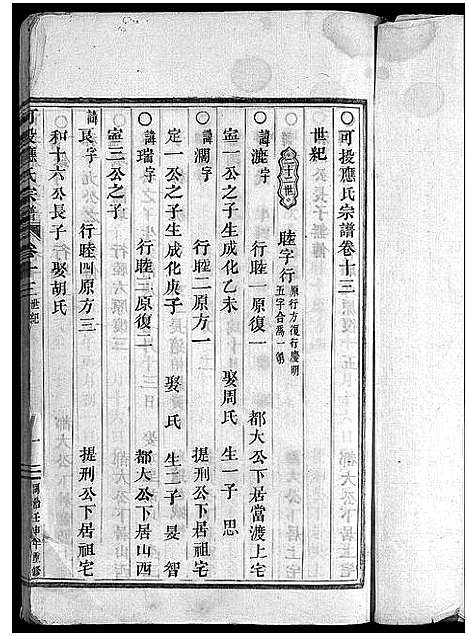 ○可投應氏宗譜卷十三
世紀
二十二世 睦字行 原行方復行慶明
五字合爲一
○諱漉字 行睦一原復一 都大公下居當渡上宅
寧一公之子生成化乙未 娶周氏 生一子 思
○諱瀾字 行睦二原方一 提刑公下居祖宅
定一公之子生成化庚子 娶 氏 生二子 旻 智
○諱瑞字 行睦三原復二 都大公下居山西
寧三公之子
○諱良字 行睦四原方三 提刑公下居祖宅
和十六公長子 娶胡氏
可投應氏宗譜 卷十三 世紀 一 同治壬申年重修